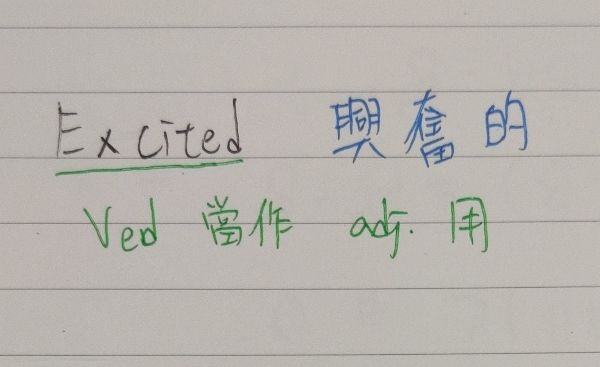 Excited 興奮的
Ved 當作 adj. 用